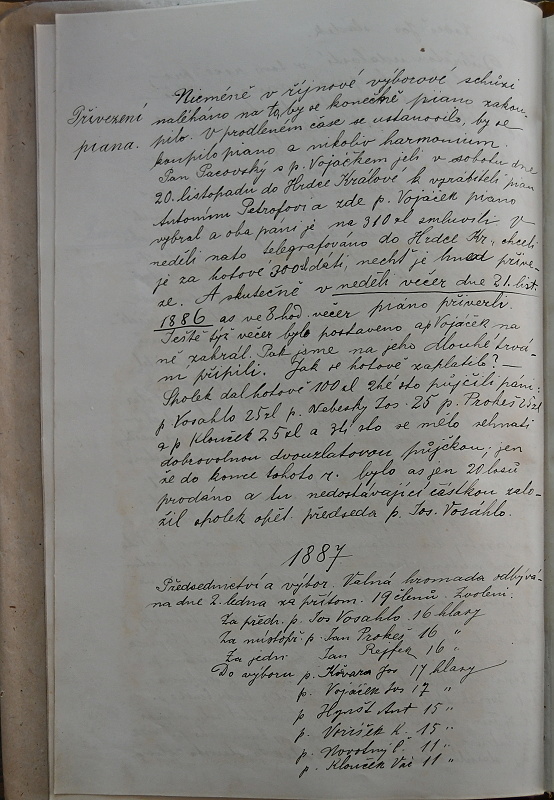 Přivezení
piana.
Nicméně v říjnové výborové schůzi
naléháno na to, by se konečně piano zakou-
pilo. V prodleném čase se ustanovilo, by se
koupilo piano a nikoliv harmonium.
Pan Pacovský s p. Vojáčkem jeli v sobotu dne
20. listopadu do Hrdce Králové k vyrábiteli pian
Antonínu Petrofovi a zde p. Vojáček piano
vybral a oba páni je na 310 zl smluvili. V
neděli nato telegrafováno do Hrdce Kr., chceli
je za hotové 300 zl dáti, nechť je hned přive-
ze. A skutečně v neděli večer dne 21. list.
1886 as ve 8 hod. večer piano přivezli.
Ještě týž večer bylo postaveno a p Vojáček na
ně zahrál. Pak jsme na jeho dlouhé trvá-
ní připili. Jak se hotově zaplatilo? —
Spolek dal hotově 100 zl 2hé sto půjčili páni:
p Vosahlo 25 zl p. Nebeský Jos. 25 p. Prokeš 25 zl
a p Klouček 25 zl a 3tí sto se mělo sehnati
dobrovolnou dvouzlatovou půjčkou, jen
že do konce tohoto r. bylo as jen 20 losů
prodáno a tu nedostávající částkou zalo-
žil spolek opět předseda p. Jos. Vosáhlo.
1887
Předsednictví a výbor. Valná hromada odbývá-
na dne 2. ledna za přítom. 19 členů. Zvoleni:
Za předs. p. Jos Vosahlo 16 hlasy
Za místopř p. Jan Prokeš 16 "
Za jedn Jan 16 "
Do výboru p. Kovara Jos 17 hlasy
p. Vojáček Jos 17 "
p Hynšt Ant 15 "
p. Voříšek K. 15 "
p. Novotný Č. 11 "
p. Klouček Vác 11 "